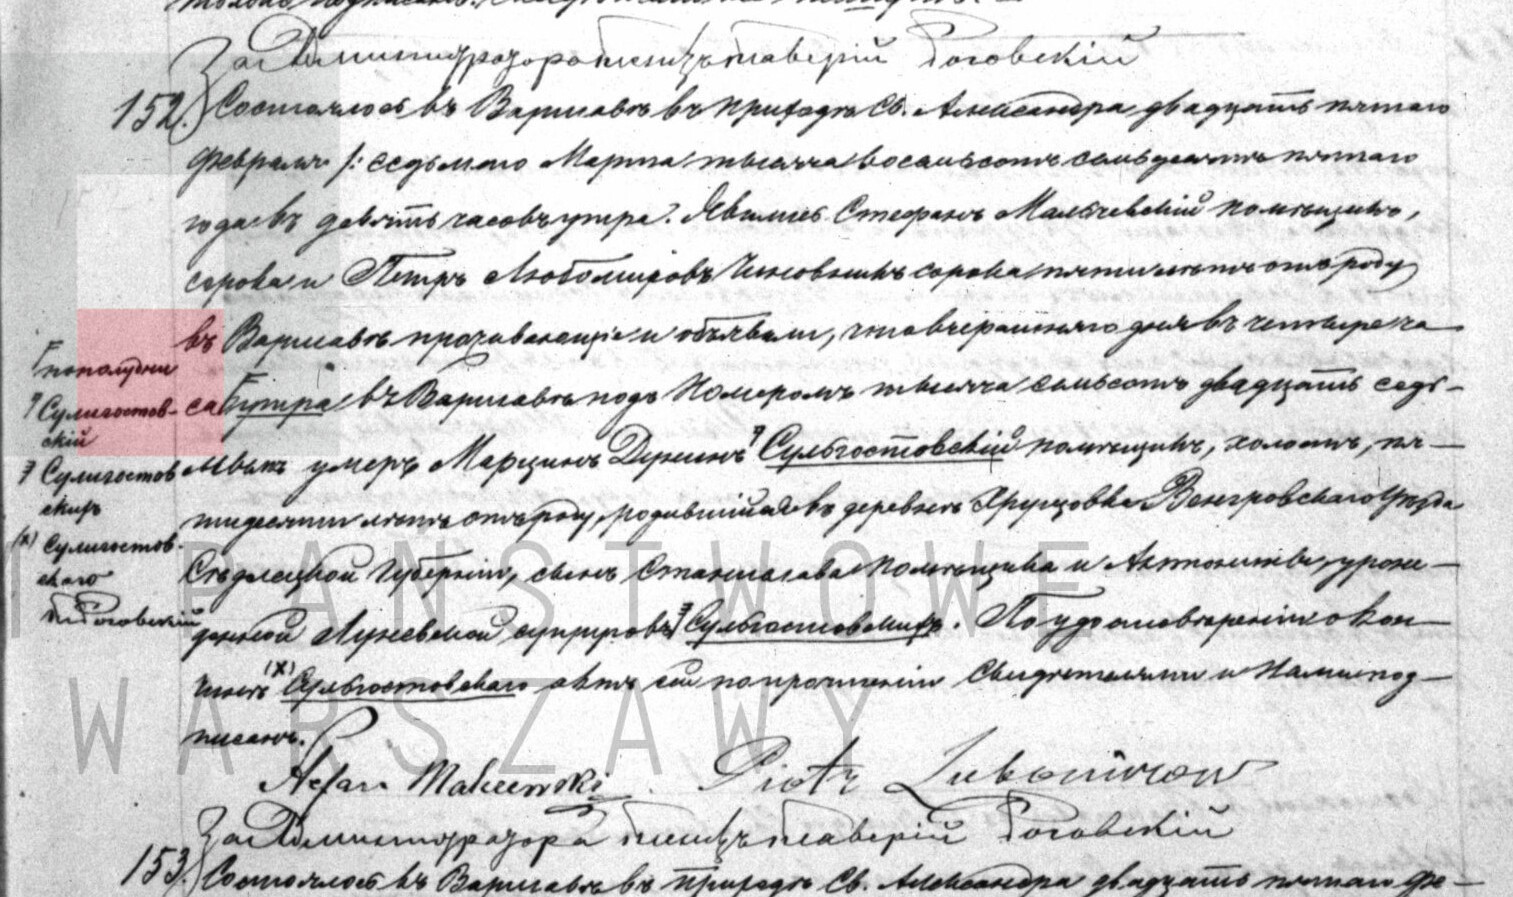 За Администратора Ксендзъ Ксаверій Роговскій
152.) Состоялось въ Варшавѣ въ приходѣ Св. Александра двадцать пятаго
Февраля /: седьмого Марта тысяча восемьсотъ семьдесятъ пятаго
года въ девять часовъ утра. Явились Стефанъ Мальчевскій помѣщикъ,
сорока и Петръ Любомировъ Чиновникъ сорока пяти лѣтъ отъ роду
въ Варшавѣ проживающіе и объявили, что вчерашняго дня въ четыре ча
са утра въ Варшавѣ подъ Номеромъ тысяча семьсотъ двадцать седь-
мымъ умеръ Марцинъ Сульгостовскій помѣщикъ, холостъ, пя-
тидесяти лѣтъ отъ роду, родившійся въ деревнѣ Хрущовка Венгровскаго Уѣзда
Сѣдлецкой Губерніи, сынъ Станислава помѣщика и Антонины, урож-
денной супруговъ Сульгостовскихъ. По удостовѣреніи о кон-
чинѣ (х) Сульгостовскаго актъ сей по прочтеніи Свидѣтелями и Нами под-
писанъ.
пополудни
Сулигостов-
скій
Сулигостов
скихъ
(х) Сулигостов-
скаго
Кс. Роговскій
Stefan Malczewski. Piotr Lubomirow
За Администратора Ксендзъ Ксаверій Роговскій
153.) Состоялось въ Варшавѣ въ Приходѣ Св. Александра двадцать пятаго Фе-
ARCHIWUM PAŃSTWOWE
WARSZAWY